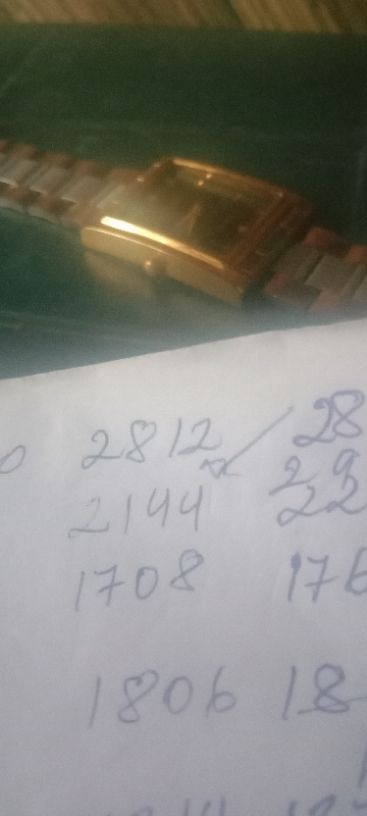 0 2812 28
29
2144 22
1708 176
1806 18